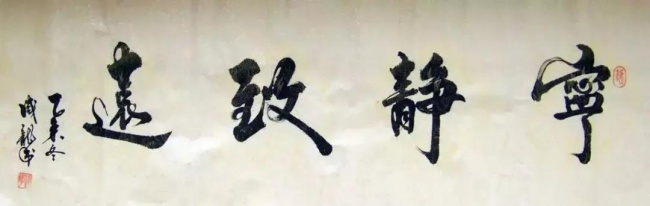 寧靜致遠
乙未冬
成龍書